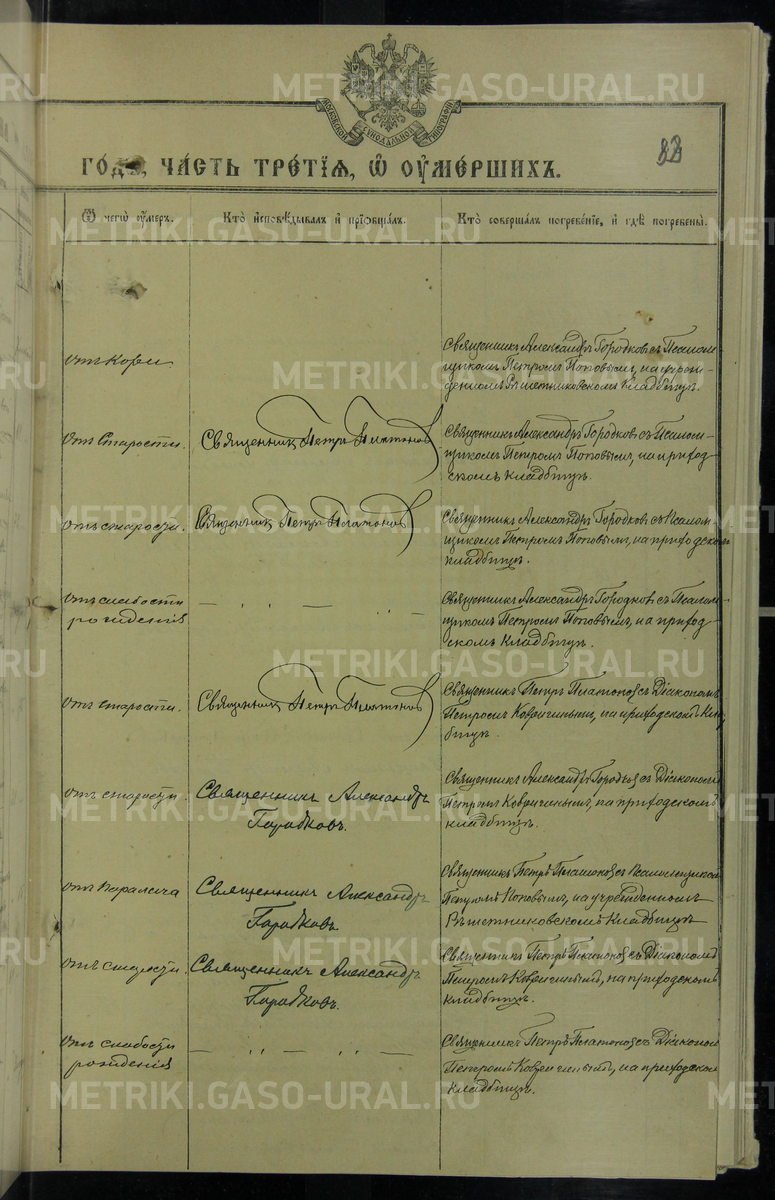 METRIKI.GASO-URAL.RU
МОСКОВСКОЙ СѴНОДАЛЬНОЙ ТИПОГРАФІИ
88
года, часть третїѧ, ѡ оумершихъ.
Ѿ чегѡ оумеръ.
Кто исповѣдывалъ и прїобщалъ.
Кто совершалъ погребенїе, и гдѣ погребены.
Отъ Кори
Священникъ Александръ Городковъ съ Псалом-
щикомъ Петромъ Поповымъ, на учреж-
денномъ Рѣшетниковскомъ Кладбищѣ.
Отъ Старости.
Священникъ Петръ Платоновъ
Священникъ Александръ Городковъ съ Псалом-
щикомъ Петромъ Поповымъ, на приход-
скомъ кладбищѣ.
Отъ старости.
Священникъ Петръ Платоновъ
Священникъ Александръ Городковъ съ Псалом-
щикомъ Петромъ Поповымъ, на приходскомъ
кладбищѣ.
Отъ слабости
рожденія
— „ — „ —
Священникъ Александръ Городковъ съ Псалом-
щикомъ Петромъ Поповымъ, на приход-
скомъ Кладбищѣ.
Отъ старости.
Священникъ Петръ Платоновъ
Священникъ Петръ Платоновъ съ Діакономъ
Петромъ Ковригинымъ, на приходскомъ Клад-
бищѣ.
Отъ старости.
Священникъ Александръ
Городковъ.
Священникъ Александръ Городковъ съ Діакономъ
Петромъ Ковригинымъ, на приходскомъ
кладбищѣ.
Отъ Паралича
Священникъ Александръ
Городковъ
Священникъ Петръ Платоновъ съ Псаломщикомъ
Петромъ Поповымъ, на учрежденномъ
Рѣшетниковскомъ Кладбищѣ
Отъ старости.
Священникъ Александръ
Городковъ.
Священникъ Петръ Платоновъ съ Діакономъ
Петромъ Ковригинымъ, на приходскомъ
кладбищѣ.
Отъ слабости
рожденія
— „ — „ —
Священникъ Петръ Платоновъ съ Діакономъ
Петромъ Ковригинымъ, на приходскомъ
кладбищѣ.